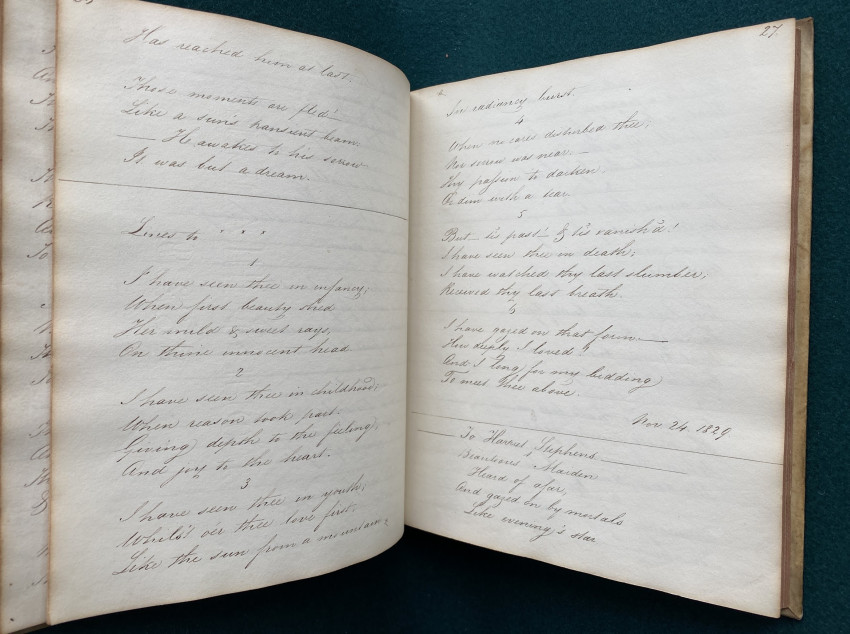 Has reached him at last.
Those moments are fled—
Like a sun's transient beam.
— He awakes to his sorrow
It was but a dream.
Lines to * * *
1
I have seen thee in infancy,
When first beauty shed
Her mild & sweet rays,
On thine innocent head
2
I have seen thee in childhood,
When reason took part.
Giving depth to the feeling,
And joy to the heart.
3
I have seen thee in youth,
Whilst o'er thee love first.
Like the sun from a mountain,
27.
In radiancy burst.
4
When no cares disturbed thee,
Nor sorrow was near.—
Thy passion to darken.
Or dim with a tear.
5
But— tis past— & tis vanish'd!
I have seen thee in death;
I have watched thy last slumber,
Received thy last breath.
6
I have gazed on that form—
How deeply I loved!
And I long for my bidding
To meet thee above.
Nov 24. 1829
To Harriet Stephens
Beauteous Maiden
Heard of afar,
And gazed on by mortals
Like evening's star